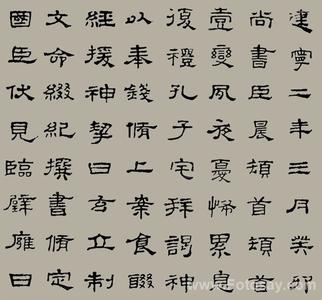 建寧二年三月癸卯
尚書臣晨頓首頓首
壹變夙夜憂怖累息
復禮孔子宅拜謁神
以奉錢脩上案食醊
經援神挈曰玄立制
文命綴紀撰書脩定
國臣伏見臨璧雍日